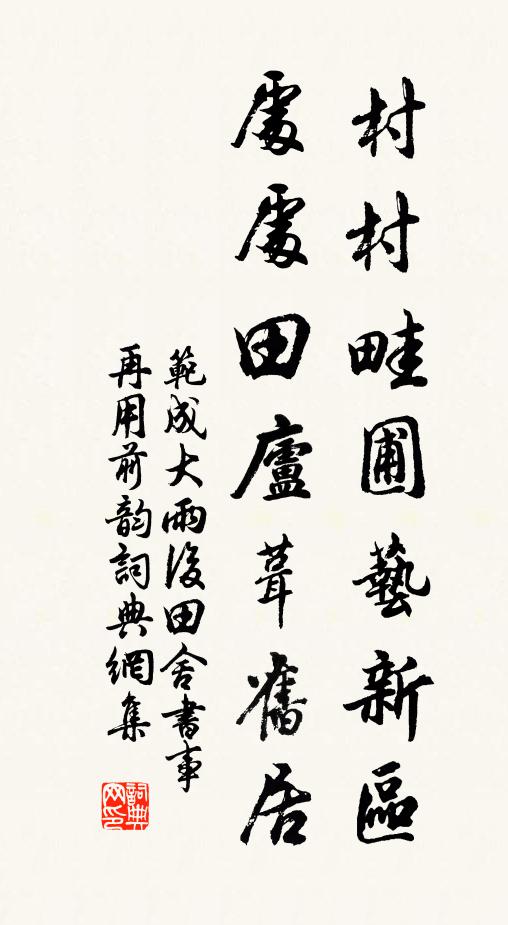 村村畦圃藝新區
處處田廬葺舊居
範成大雨後田舍書事
再用前韵詞典網集
詞典
网印